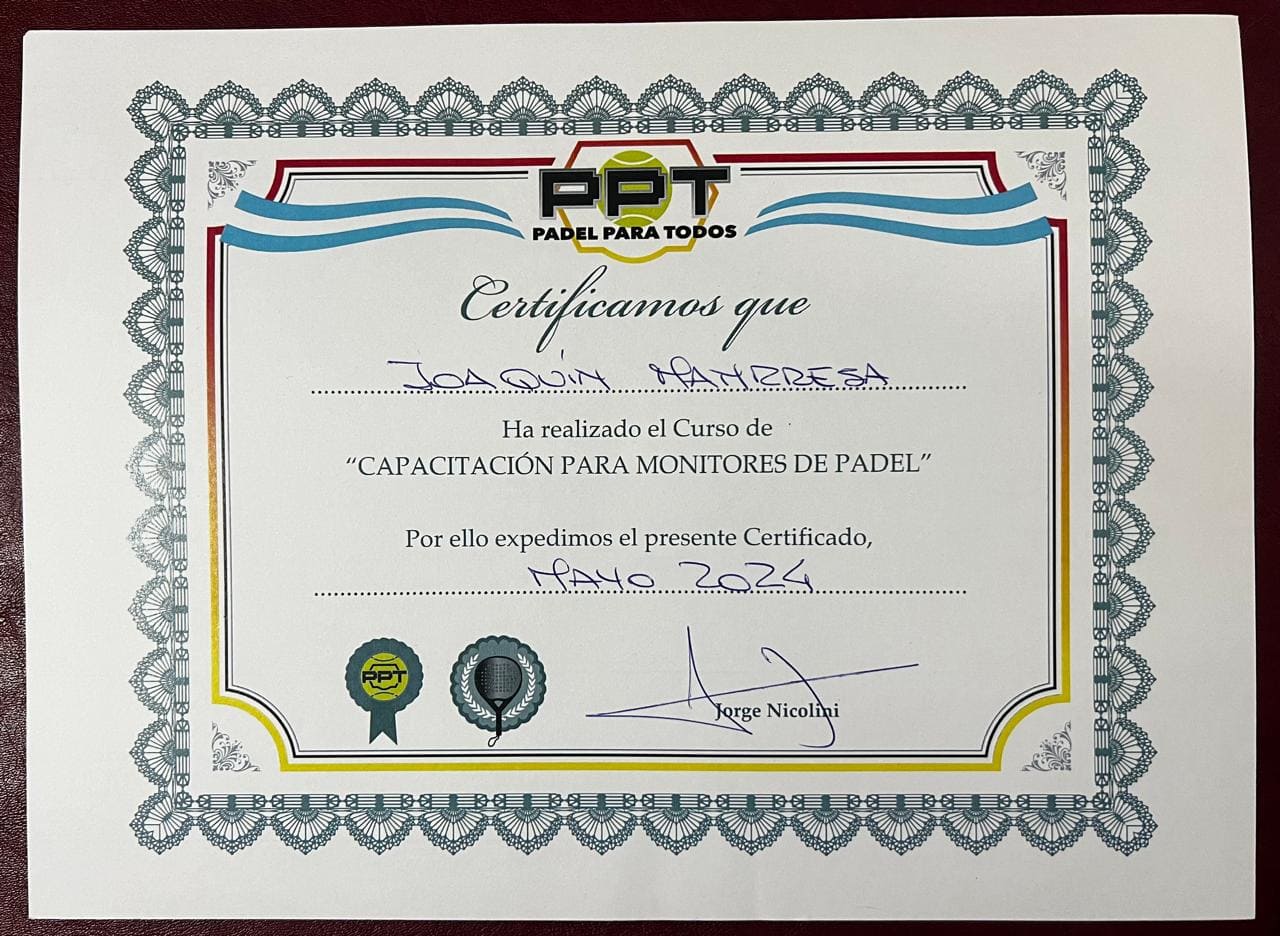 PPT
PADEL PARA TODOS
Certificamos que
JOAQUÍN MANRRESA
Ha realizado el Curso de
“CAPACITACIÓN PARA MONITORES DE PADEL”
Por ello expedimos el presente Certificado,
MAYO 2024
PPT
Jorge Nicolini